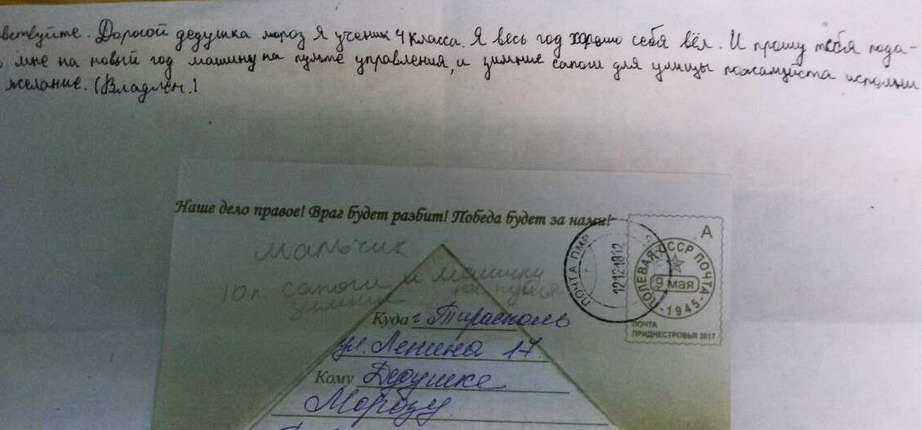 вствуйте. Дорогой дедушка мороз я ученик 4 класса. Я весь год хорошо себя вёл. И прошу тебя пода-
мне на новый год машину на пульте управления, и зимние сапоги для улицы пожалуйста исполни
желание. (Владлен.)
Наше дело правое! Враг будет разбит! Победа будет за нами!
мальчик
10 л. сапоги и машинку
зимние на пульте
Куда г. Тирасполь
ул. Ленина 17
Кому Дедушке
Морозу
ПОЧТА ПМР
12121812
А
ПОЛЕВАЯ СССР ПОЧТА
9 мая
1945
ПОЧТА
ПРИДНЕСТРОВЬЯ 2017